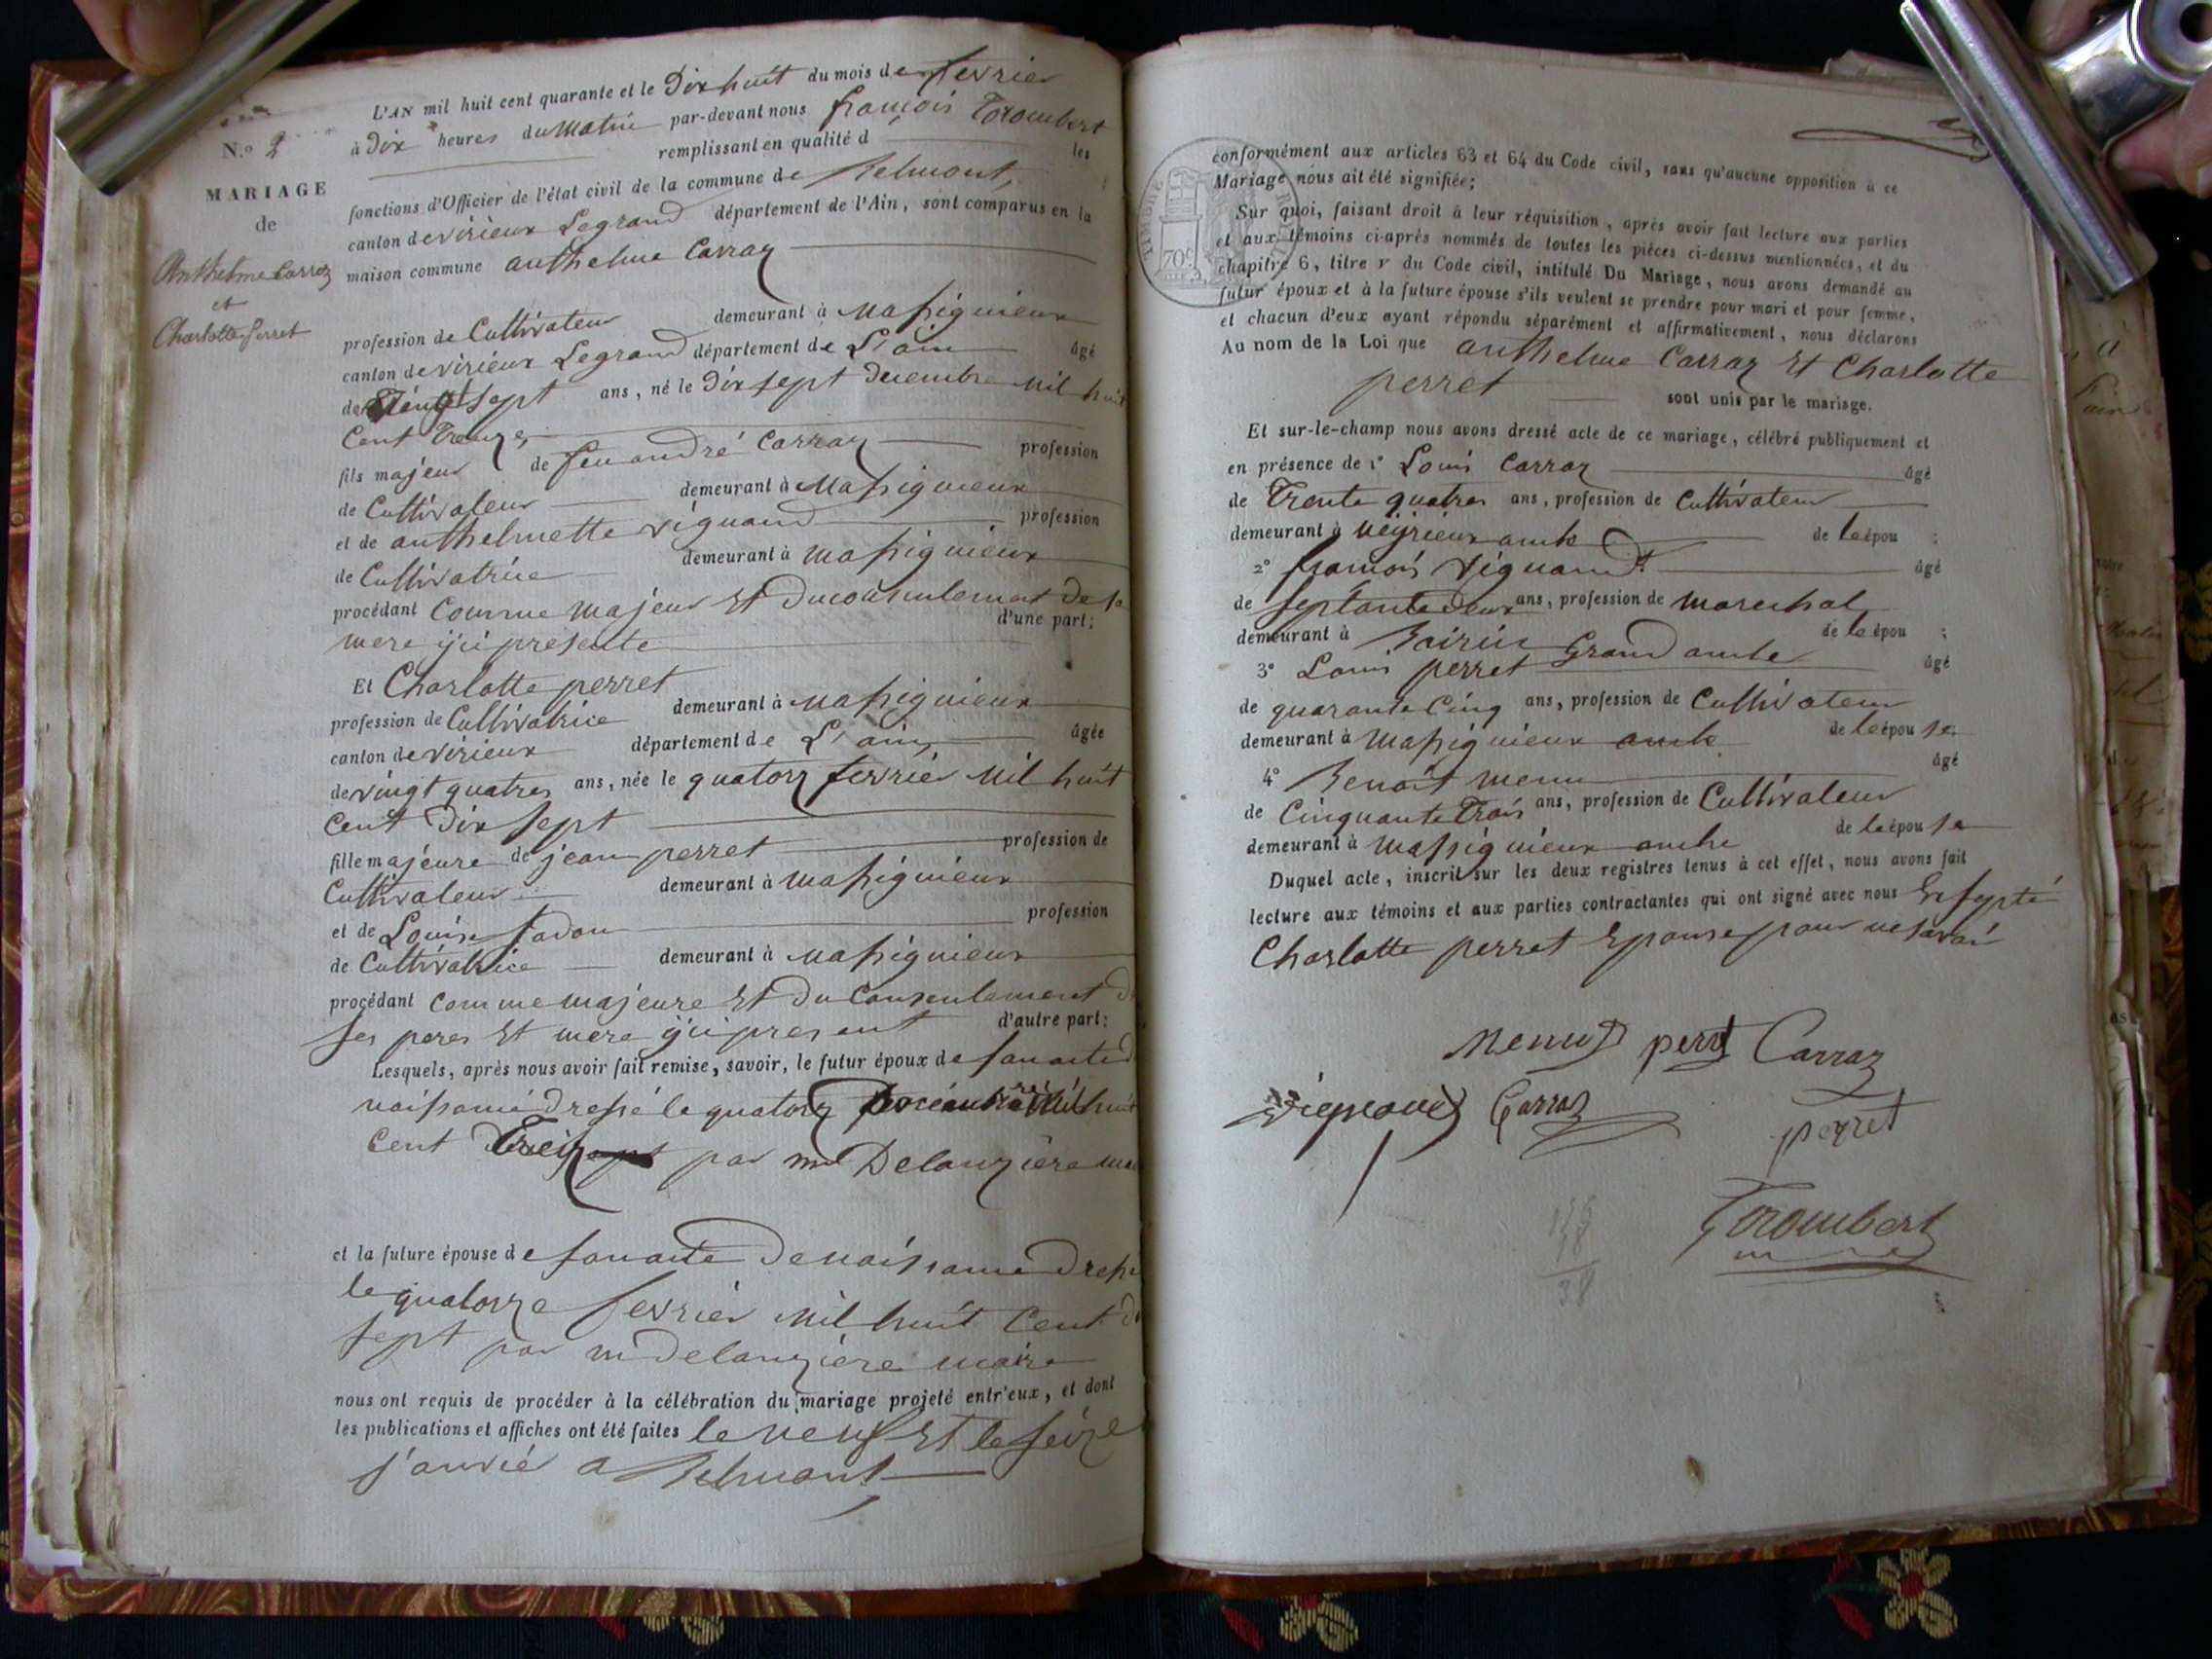 N.o 2
MARIAGE
de
Anthelme Carraz
et
Charlotte perret
L'AN mil huit cent quarante et le Dix huit du mois de fevrier
à Dix heures du Matin par-devant nous françois Trombert
remplissant en qualité d les
fonctions d'Officier de l'état civil de la commune de Belmont,
canton de virieux Legrand département de l'Ain, sont comparus en la
maison commune anthelme Carraz
profession de Cultivateur demeurant à Massignieux
canton de virieux Legrand département de L'ain âgé
de vingt sept ans, né le Dix sept decembre mil huit
Cent Treize
fils majeur de feu andré Carraz profession
de Cultivateur demeurant à Massignieux
et de anthelmette viguand profession
de Cultivatrice demeurant à massignieux
procédant Comme majeur Et du consentement de sa
d'une part;
mere ici presente
Et Charlotte perret
profession de Cultivatrice demeurant à Massignieux
canton de virieux département de L'ain âgée
de vingt quatres ans, née le quatorz fevrier mil huit
Cent Dix sept
fille majeure de jean perret profession de
Cultivateur demeurant à massignieux
et de Louise profession
de Cultivatrice demeurant à Massignieux
procédant Comme majeure Et du Consentement d
ses peres Et mere ici present d'autre part:
Lesquels, après nous avoir fait remise, savoir, le futur époux de son acte d
naissance Dressé le quatorz mil huit
Cent Treiz par mr Delauzière
et la future épouse de son acte De naissance Dressé
le quatorze fevrier mil huit Cent
sept par mr Delauzière maire
nous ont requis de procéder à la célébration du mariage projeté entr'eux, et dont
les publications et affiches ont été faites le neuf Et le seize
janvié a Belmont
conformément aux articles 63 et 64 du Code civil, sans qu'aucune opposition à ce
Mariage nous ait été signifiée;
Sur quoi, faisant droit à leur réquisition, après avoir fait lecture aux parties
et aux témoins ci-après nommés de toutes les pièces ci-dessus mentionnées, et du
chapitre 6, titre v du Code civil, intitulé Du Mariage, nous avons demandé au
futur époux et à la future épouse s'ils veulent se prendre pour mari et pour femme,
et chacun d'eux ayant répondu séparément et affirmativement, nous déclarons
Au nom de la Loi que anthelme Carraz Et Charlotte
perret sont unis par le mariage.
Et sur-le-champ nous avons dressé acte de ce mariage, célébré publiquement et
en présence de 1º Louis Carraz âgé
de Trente quatres ans, profession de Cultivateur
demeurant à veyrieux de le épou ;
2º françois viguand âgé
de septante deux ans, profession de marechal
demeurant à Grand de le épou ;
3º Louis perret âgé
de quarante Cinq ans, profession de Cultivateur
demeurant à Massignieux de le épouse
4º Benoit menu âgé
de Cinquante Trois ans, profession de Cultivateur
demeurant à Massignieux de le épouse
Duquel acte, inscrit sur les deux registres tenus à cet effet, nous avons fait
lecture aux témoins et aux parties contractantes qui ont signé avec nous Exsepté
Charlotte perret Epouse pour ne savoir
Menu perret Carraz
Carraz
perret
Trombert